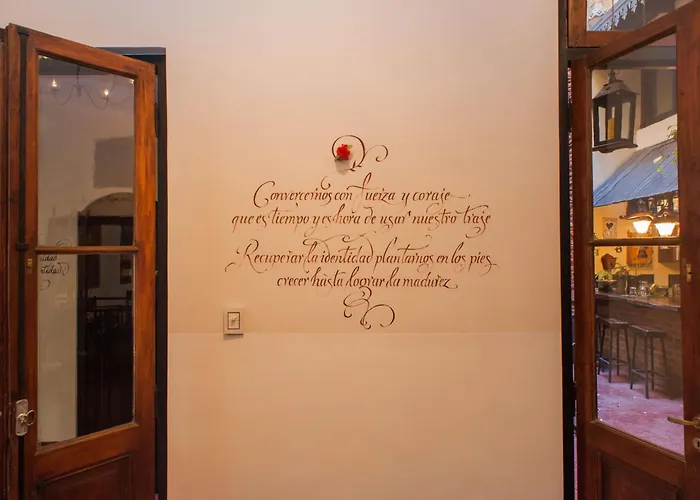 Convercernos con fuerza y coraje
que es tiempo y es hora de usar nuestro traje
Recuperar la identidad plantarnos en los pies
crecer hasta lograr la madurez